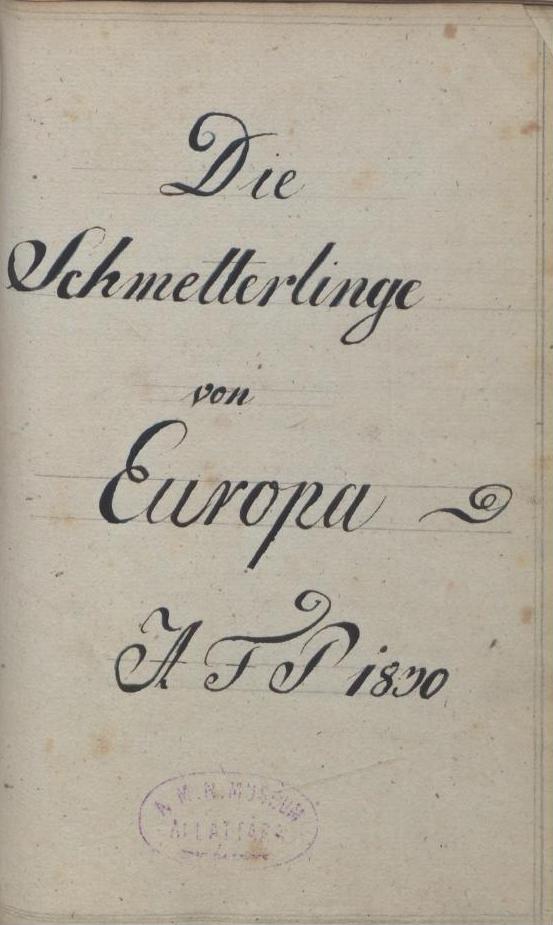 Die
Schmetterlinge
von
Europa
A F P 1830
A M. N. MUSEUM
ÁLLATTÁRA